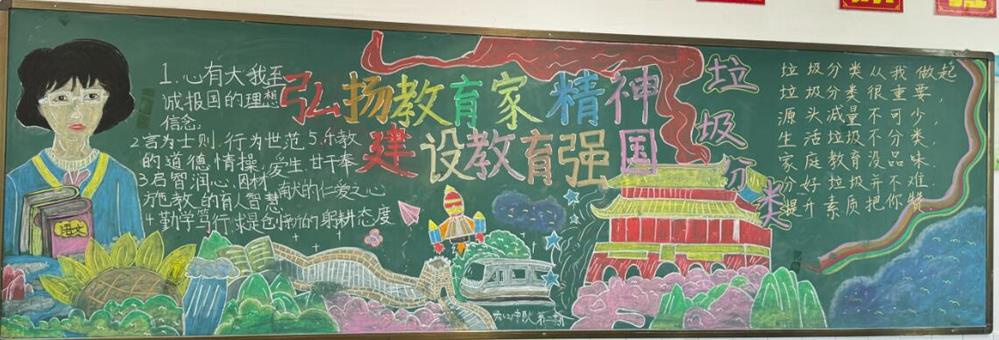 1.心有大我至
诚报国的理想
信念.
2言为士则.行为世范
的道德情操,
3启智润心.因材
施教的育人智慧
4勤学笃行.求是创新的躬耕态度
5.乐教
爱生.甘于奉
献的仁爱之心
弘扬教育家精神
建设教育强国
垃圾分类
垃圾分类从我做起
垃圾分类很重要,
源头减量不可少,
生活垃圾不分类,
家庭教育没品味.
分好垃圾并不难.
提升素质把你
语文